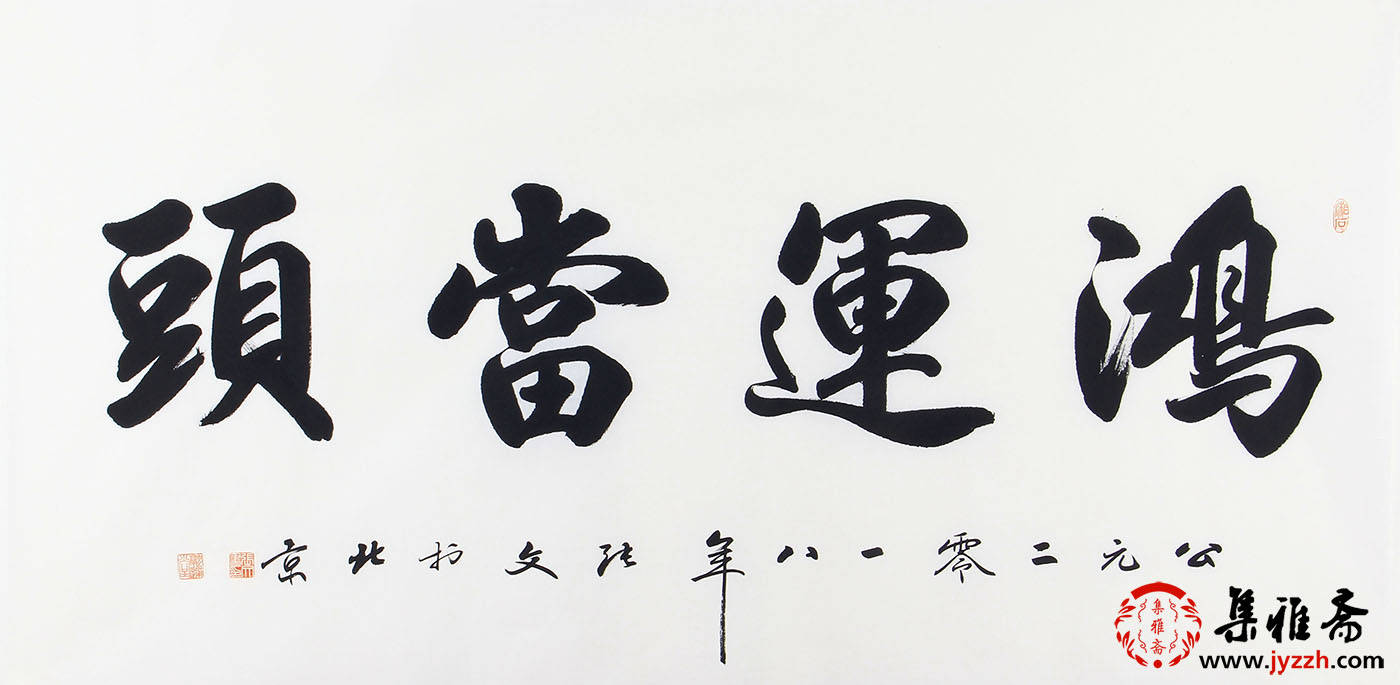 鴻運當頭
公元二零一八年张文於北京
集雅斋
集雅斋
www.jyzzh.com